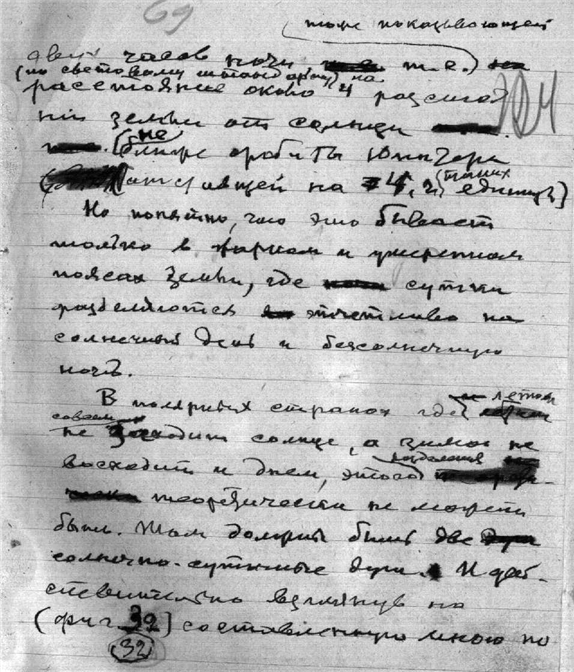 69
тоже показывающей
двух часов ночи, т.е.) на
(по световому шагомерну) на
расстояние около 4 расстоя-
ний земли от солнца
(не ближе орбиты Юпитера
отстоящей на 4,2 таких единиц)
Но понятно, что это бывает
только в жарком и умеренном
поясах Земли, где сутки
разделяются отчетливо на
солнечный день и безсолнечную
ночь.
В полярных странах где летом
совсем
не заходит солнце, а зимою не
восходит и днем, этого
теоретически не может
быть. Там должны быть две
солнечно-суточные дуги. И дей-
ствительно взглянув на
(фиг. 32) составленную мною по
(32)